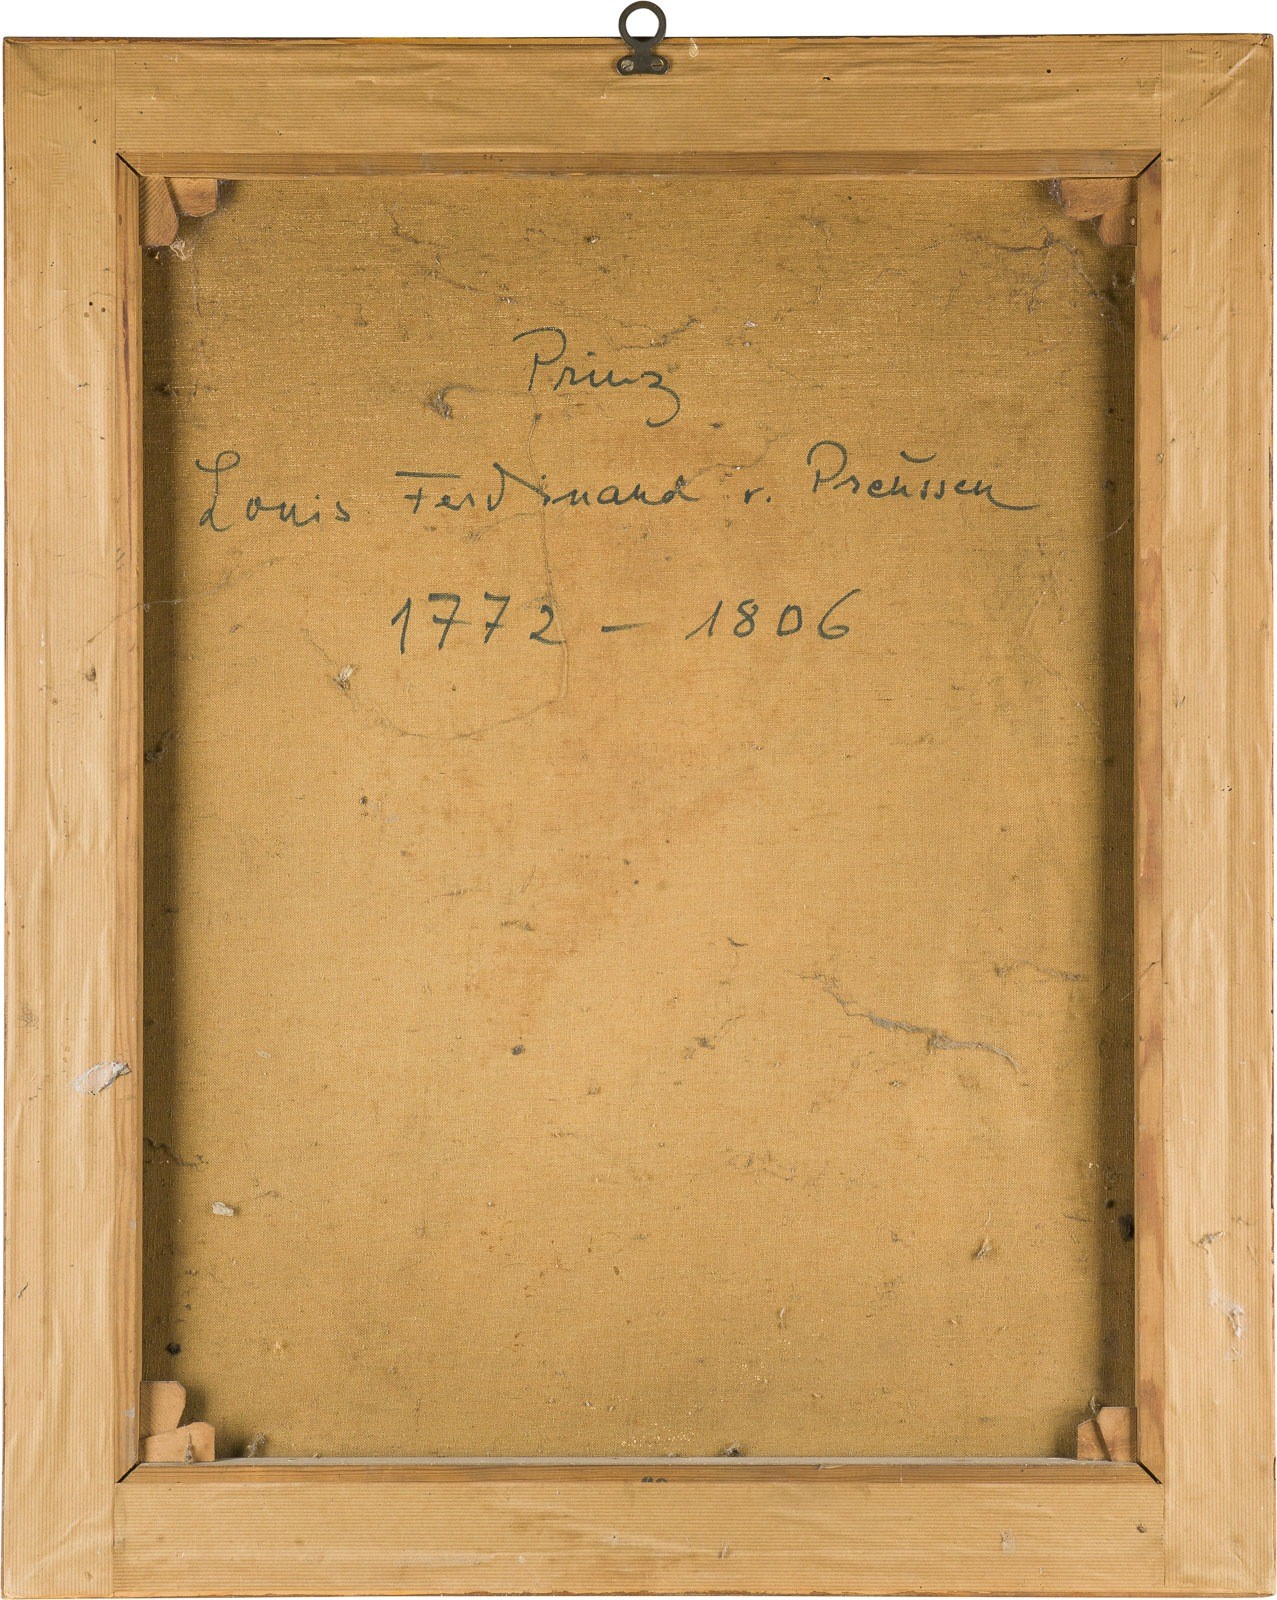 Prinz
Louis Ferdinand v. Preussen
1772 – 1806